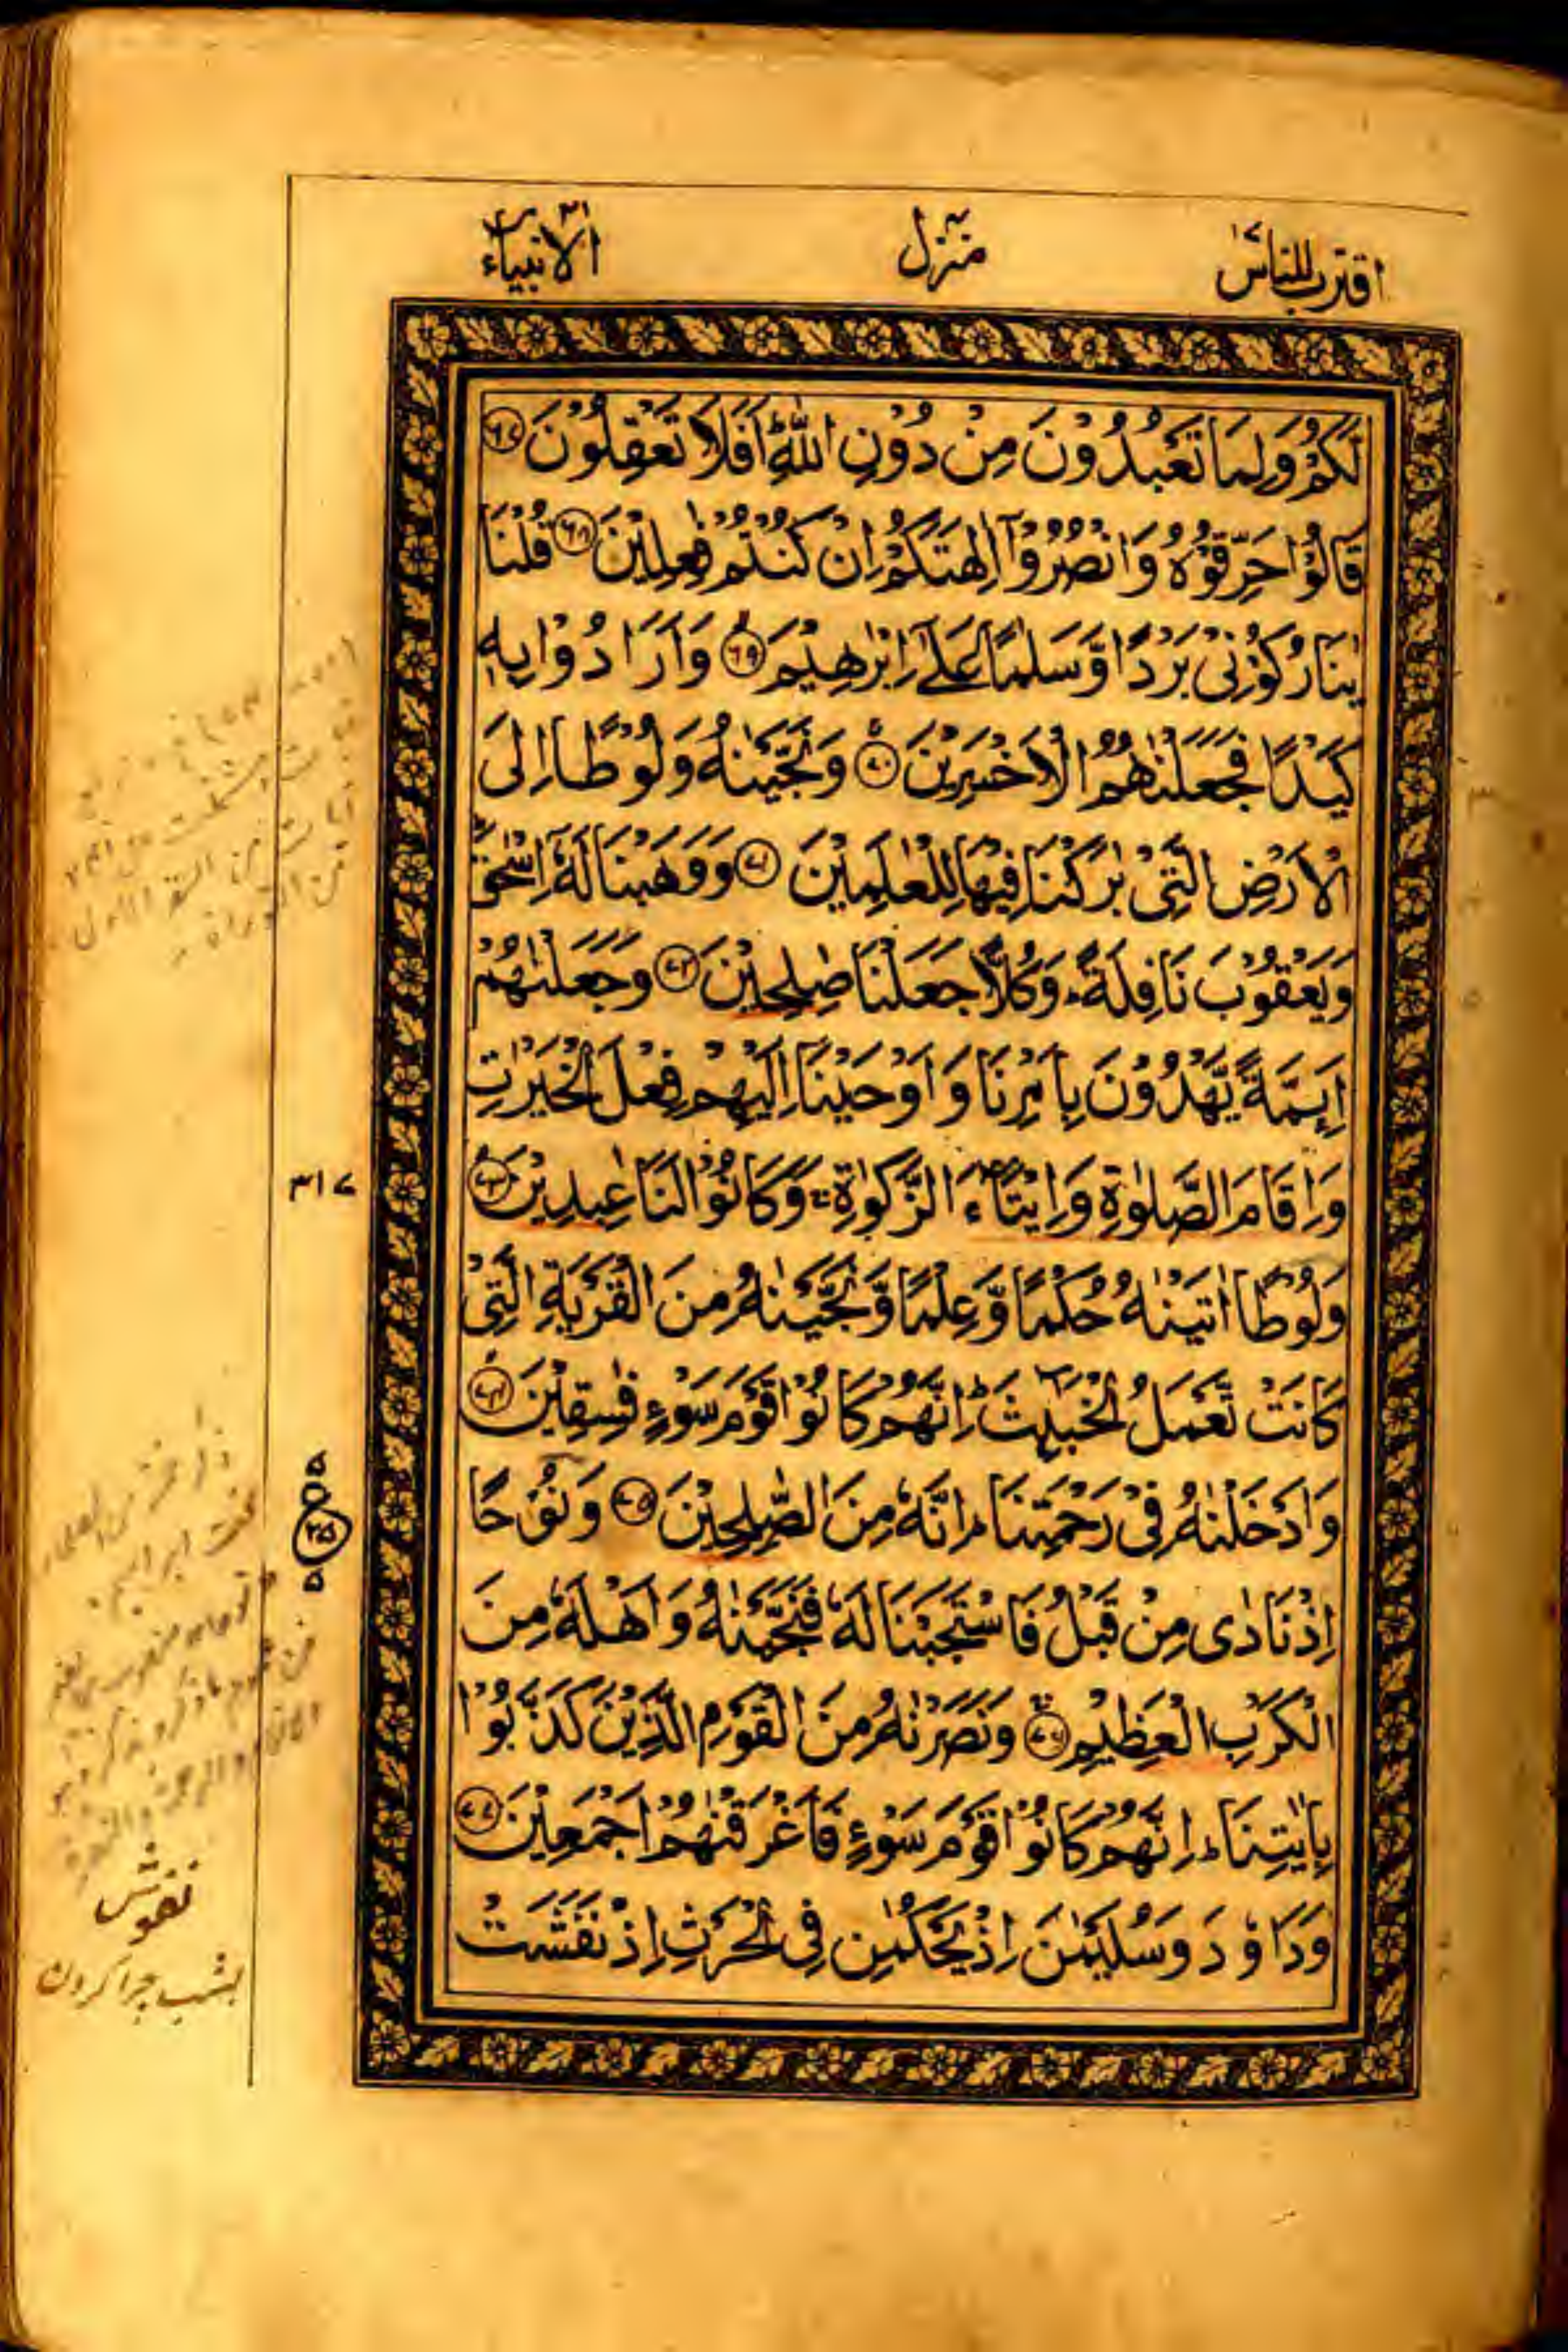 اقترب للناس ١٧
منزل ٤
الانبياء ٢١
لَّكُمْ وَلِمَا تَعْبُدُوْنَ مِنْ دُوْنِ اللّٰهِ ؕ اَفَلَا تَعْقِلُوْنَ ٦٧
قَالُوْا حَرِّقُوْهُ وَانْصُرُوْۤا اٰلِهَتَكُمْ اِنْ كُنْتُمْ فٰعِلِيْنَ ٦٨ قُلْنَا
يٰنَارُ كُوْنِيْ بَرْدًا وَّسَلٰمًا عَلٰۤى اِبْرٰهِيْمَ ٦٩ وَاَرَادُوْا بِهٖ
كَيْدًا فَجَعَلْنٰهُمُ الْاَخْسَرِيْنَ ٧٠ وَنَجَّيْنٰهُ وَلُوْطًا اِلَى
الْاَرْضِ الَّتِيْ بٰرَكْنَا فِيْهَا لِلْعٰلَمِيْنَ ٧١ وَوَهَبْنَا لَهٗۤ اِسْحٰقَ ؕ
وَيَعْقُوْبَ نَافِلَةً ؕ وَكُلًّا جَعَلْنَا صٰلِحِيْنَ ٧٢ وَجَعَلْنٰهُمْ
اَئِمَّةً يَّهْدُوْنَ بِاَمْرِنَا وَاَوْحَيْنَاۤ اِلَيْهِمْ فِعْلَ الْخَيْرٰتِ
وَاِقَامَ الصَّلٰوةِ وَاِيْتَآءَ الزَّكٰوةِ ۚ وَكَانُوْا لَنَا عٰبِدِيْنَ ٧٣
وَلُوْطًا اٰتَيْنٰهُ حُكْمًا وَّعِلْمًا وَّنَجَّيْنٰهُ مِنَ الْقَرْيَةِ الَّتِيْ
كَانَتْ تَّعْمَلُ الْخَبٰٓئِثَ ؕ اِنَّهُمْ كَانُوْا قَوْمَ سَوْءٍ فٰسِقِيْنَ ٧٤
وَاَدْخَلْنٰهُ فِيْ رَحْمَتِنَا ؕ اِنَّهٗ مِنَ الصّٰلِحِيْنَ ٧٥ وَنُوْحًا
اِذْ نَادٰى مِنْ قَبْلُ فَاسْتَجَبْنَا لَهٗ فَنَجَّيْنٰهُ وَاَهْلَهٗ مِنَ
الْكَرْبِ الْعَظِيْمِ ٧٦ وَنَصَرْنٰهُ مِنَ الْقَوْمِ الَّذِيْنَ كَذَّبُوْا
بِاٰيٰتِنَا ؕ اِنَّهُمْ كَانُوْا قَوْمَ سَوْءٍ فَاَغْرَقْنٰهُمْ اَجْمَعِيْنَ ٧٧
وَدَاوٗدَ وَسُلَيْمٰنَ اِذْ يَحْكُمٰنِ فِي الْحَرْثِ اِذْ نَفَشَتْ
٣١٧
٥
٢٥
٥
نفوش
بشب چرا کردن